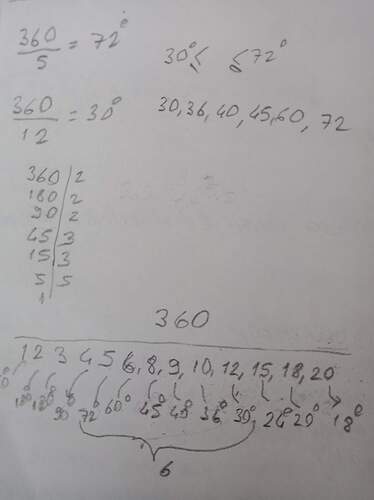 360/5 = 72°
30° ≤ ≤ 72°
360/12 = 30°
30, 36, 40, 45, 60, 72
360 | 2
180 | 2
90 | 2
45 | 3
15 | 3
5 | 5
1
360
1 2 3 4 5 6, 8, 9, 10, 12, 15, 18, 20
90° 72° 60° 45° 40° 36° 30° 24° 20° 18°
6